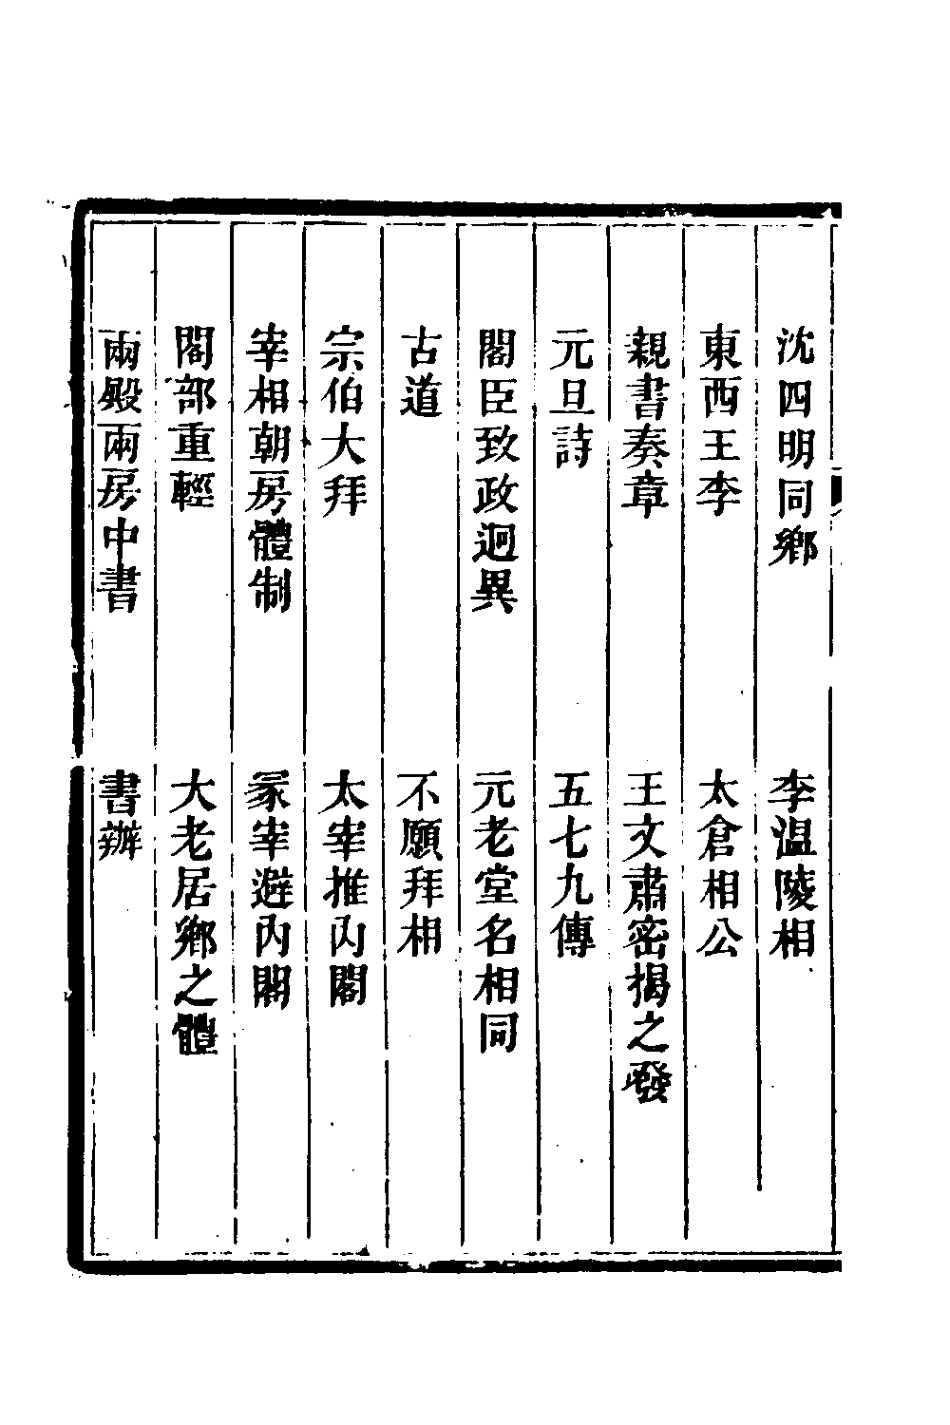 沈四明同鄉　李温陵相
東西王李　太倉相公
親書奏章　王文肅密揭之發
元旦詩　五七九傳
閣臣致政迥異　元老堂名相同
古道　不願拜相
宗伯大拜　太宰推內閣
宰相朝房體制　冢宰避內閣
閣部重輕　大老居鄉之體
兩殿兩房中書　書辦